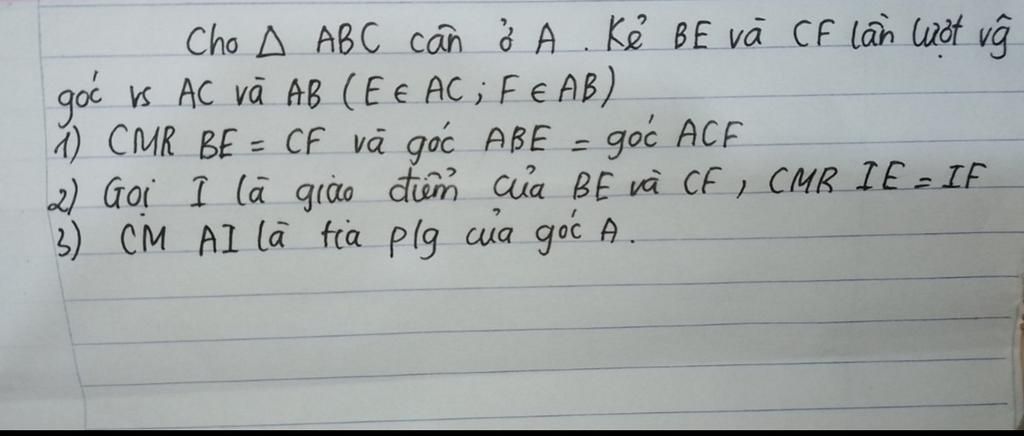 Cho △ ABC cân ở A. Kẻ BE và CF lần lượt vg̃
góc vs AC và AB (E ∈ AC; F ∈ AB)
1) CMR BE = CF và góc ABE = góc ACF
2) Gọi I là giao điểm của BE và CF, CMR IE = IF
3) CM AI là tia p/g của góc A.